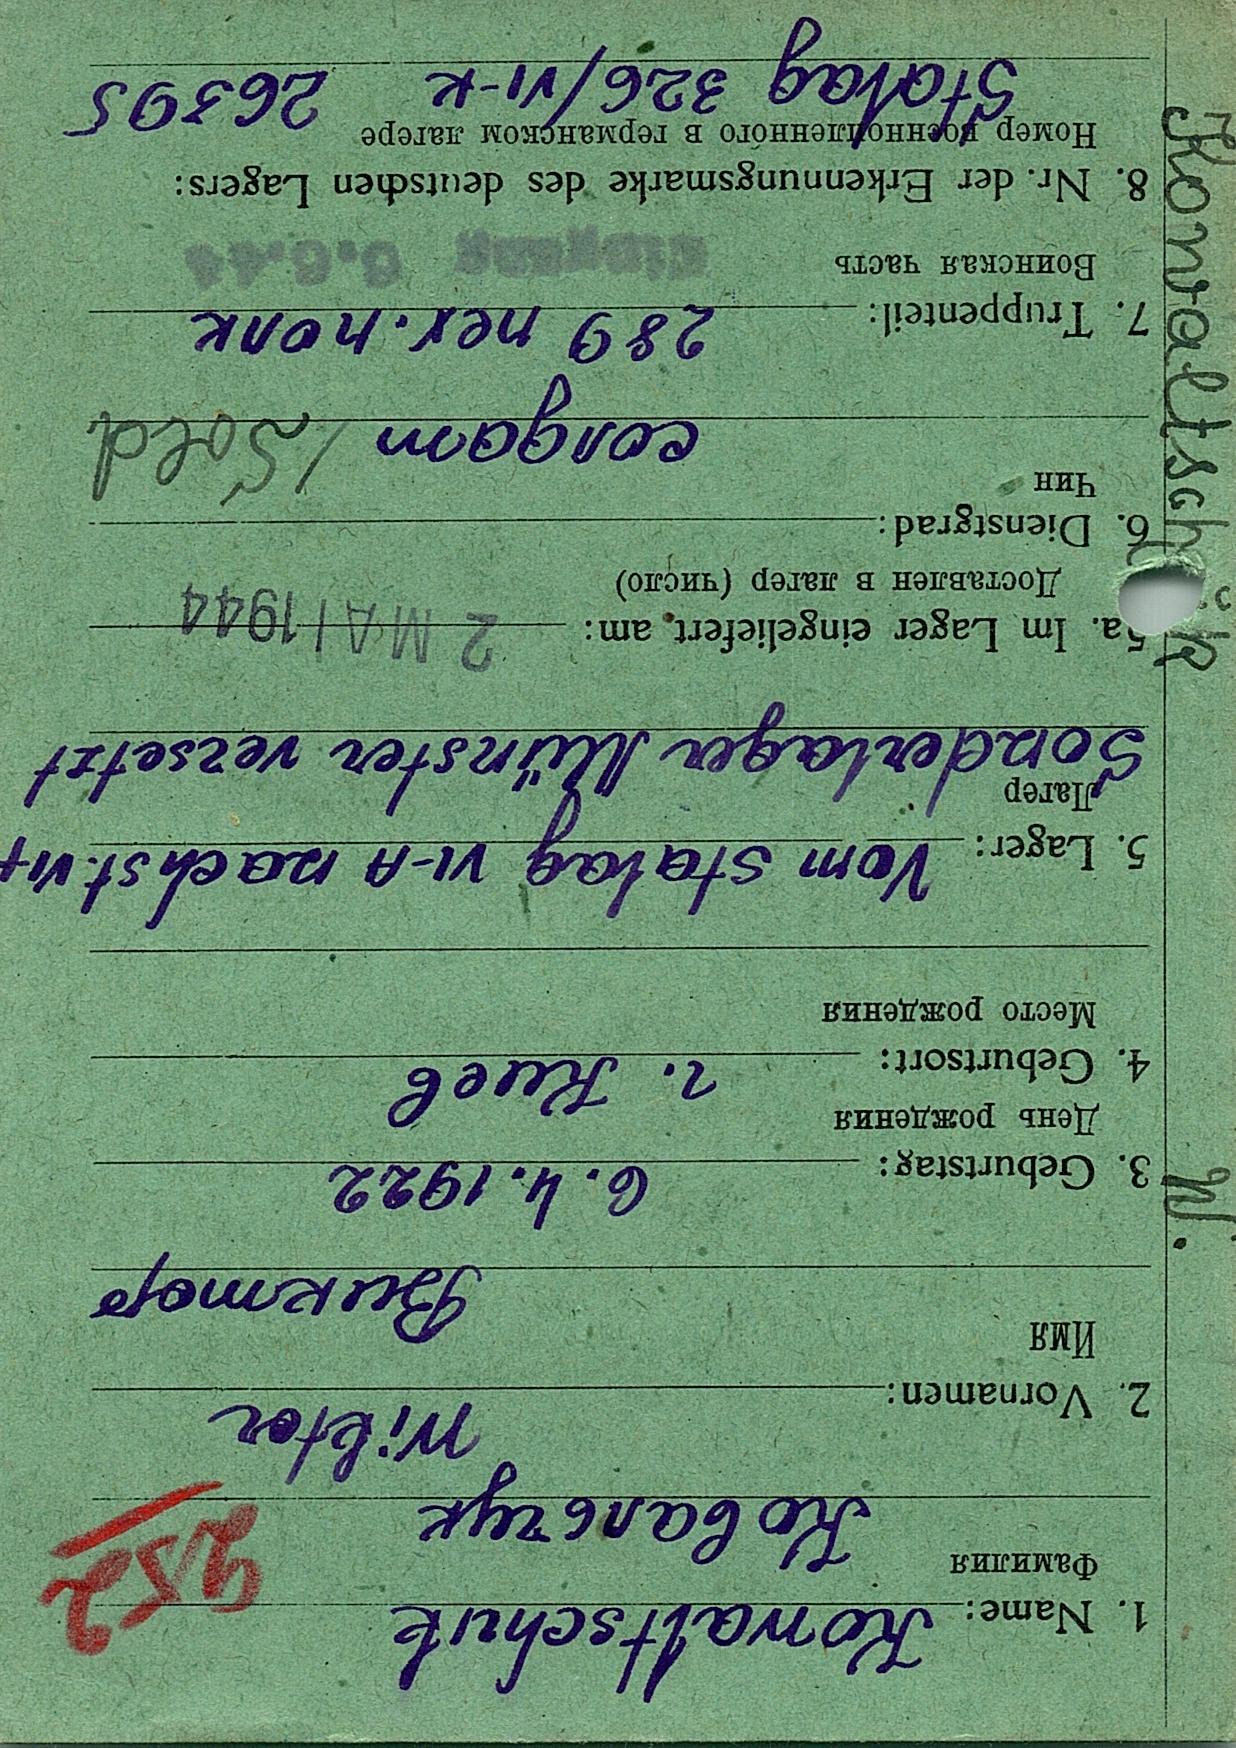 952
1. Name: Kowaltschuk
Фамилия Ковальчук
2. Vornamen: Wiktor
Имя Виктор
3. Geburtstag: 6.4.1922
День рождения
4. Geburtsort: г. Киев
Место рождения
5. Lager: Vom Stalag VI-A nach St. VI
Лагер
Sonderlager Münster versetzt
5a. Im Lager eingeliefert am: 2 MAI 1944
Доставлен в лагер (число)
6. Dienstgrad:
Чин солдат / Sold
7. Truppenteil: 289 пех. полк
Воинская часть
8. Nr. der Erkennungsmarke des deutschen Lagers:
Номер военнопленного в германском лагере
Stalag 326/VI-K 26395
W. Kowaltschuk